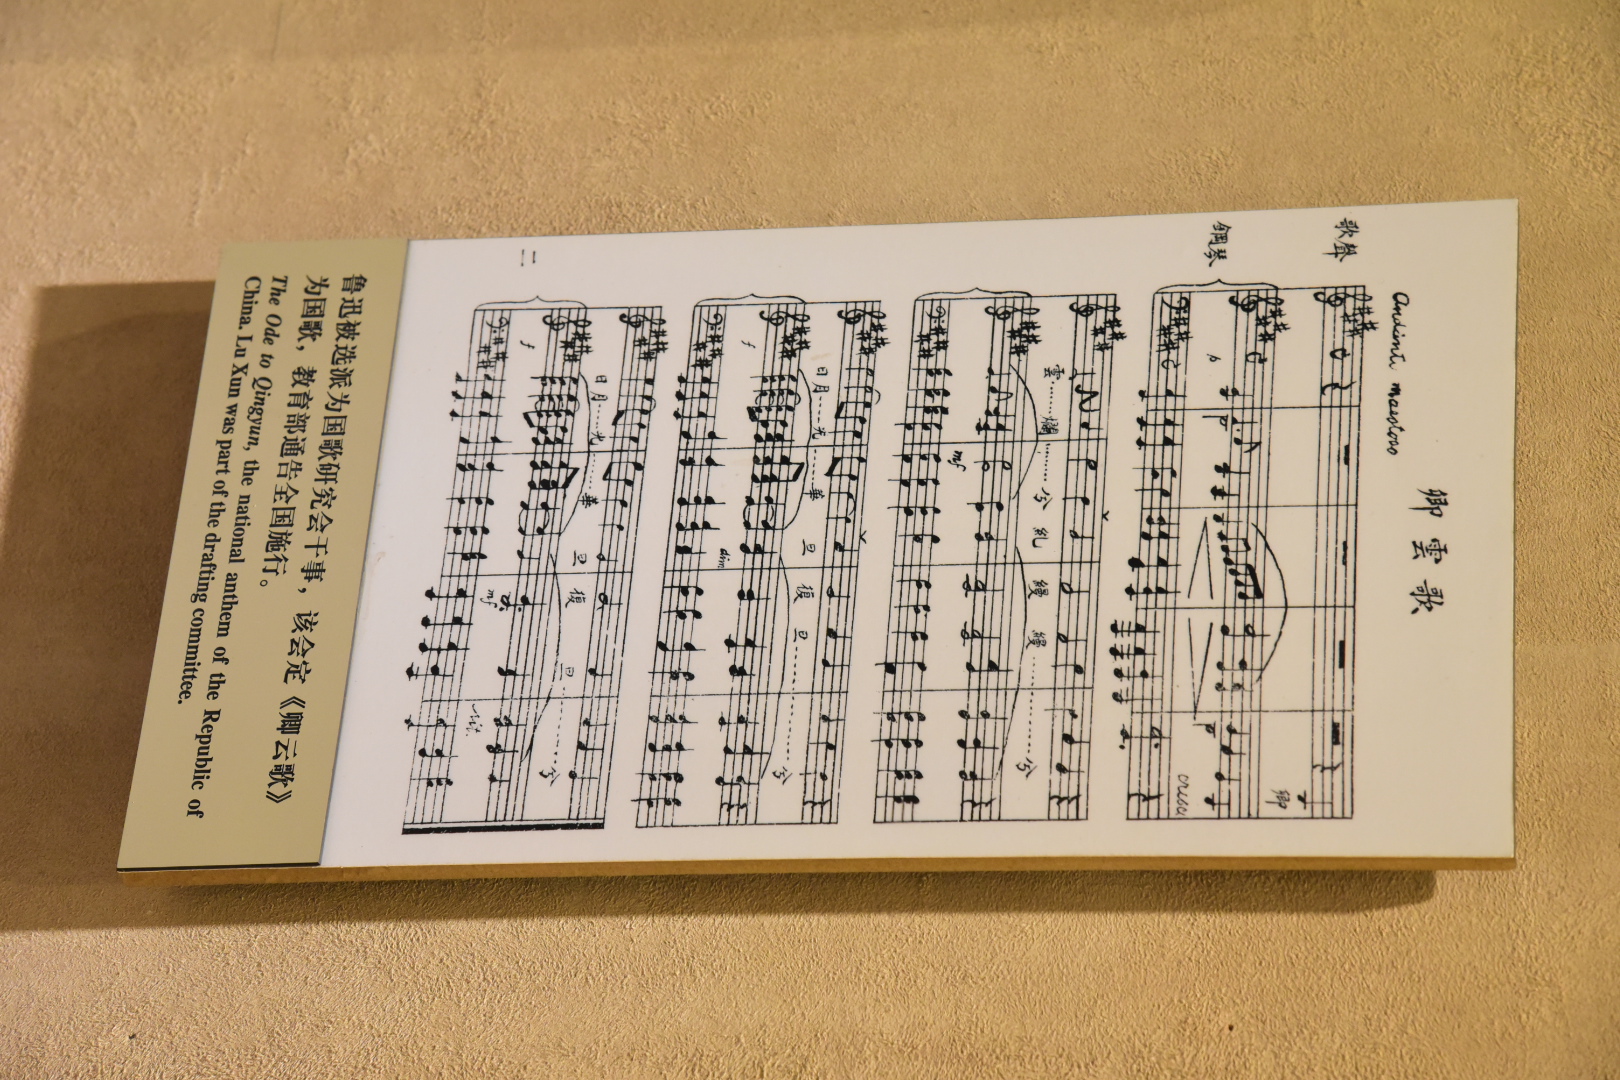 卿雲歌
Andint maestoso
歌聲
卿
鋼琴
p
p
p
cresc
雲……爛………兮 糺 縵 縵………兮
mf
日月……光………華 旦 復 旦………兮
f
dim
日月……光………華 旦 復 旦………兮
f
mf
rit.
二
鲁迅被选派为国歌研究会干事，该会定《卿云歌》
为国歌，教育部通告全国施行。
The Ode to Qingyun, the national anthem of the Republic of
China. Lu Xun was part of the drafting committee.